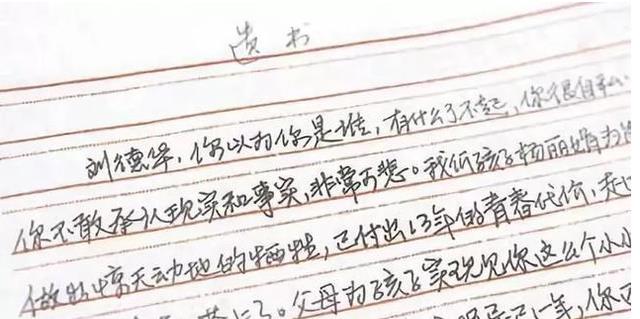 遗书
刘德华,你以为你是谁,有什么了不起,你很自私
你不敢承认现实和事实,非常可悲。我低孩子杨丽娟为
做出惊天动地的牺牲,已付出13年的青春代价,走
。父母为孩子实现见你这么个小小
一年,你